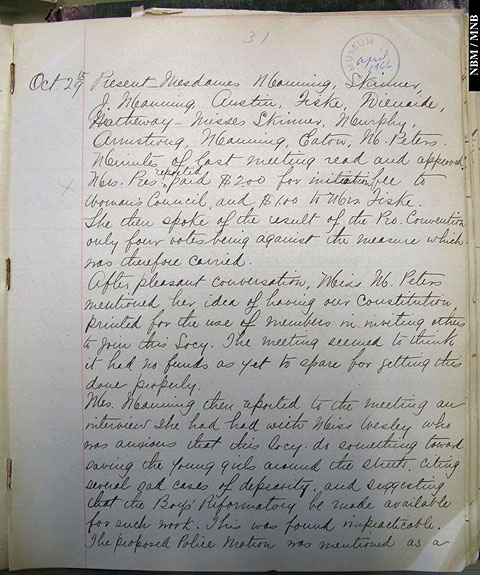 31
MUSEUM
April
1966
NBM / MNB
Oct. 29th Present - Mesdames Manning, Skinner,
J. Manning, Austin, Fiske,
Hatheway - Misses Skinner, Murphy,
Armstrong, Manning, Eaton, M. Peters.
Minutes of last meeting read and approved.
Mrs. Pres. reported paid $2.00 for initiation fee to
Woman's Council, and $1.00 to Mrs. Fiske.
She then spoke of the result of the Pro. Convention
only four votes being against the measure which
was therefore carried.
After pleasant conversation, Miss M. Peters
mentioned her idea of having our Constitution
printed for the use of members in inviting others
to join this Socy. The meeting seemed to think
it had no funds as yet to spare for getting this
done properly.
Mrs. Manning then reported to the meeting an
interview she had had with Miss Wesley who
was anxious that this Socy. do something toward
saving the young girls around the streets, citing
several sad cases of depravity, and suggesting
that the Boys' Reformatory be made available
for such work. This was found impracticable.
The proposed Police Matron was mentioned as a